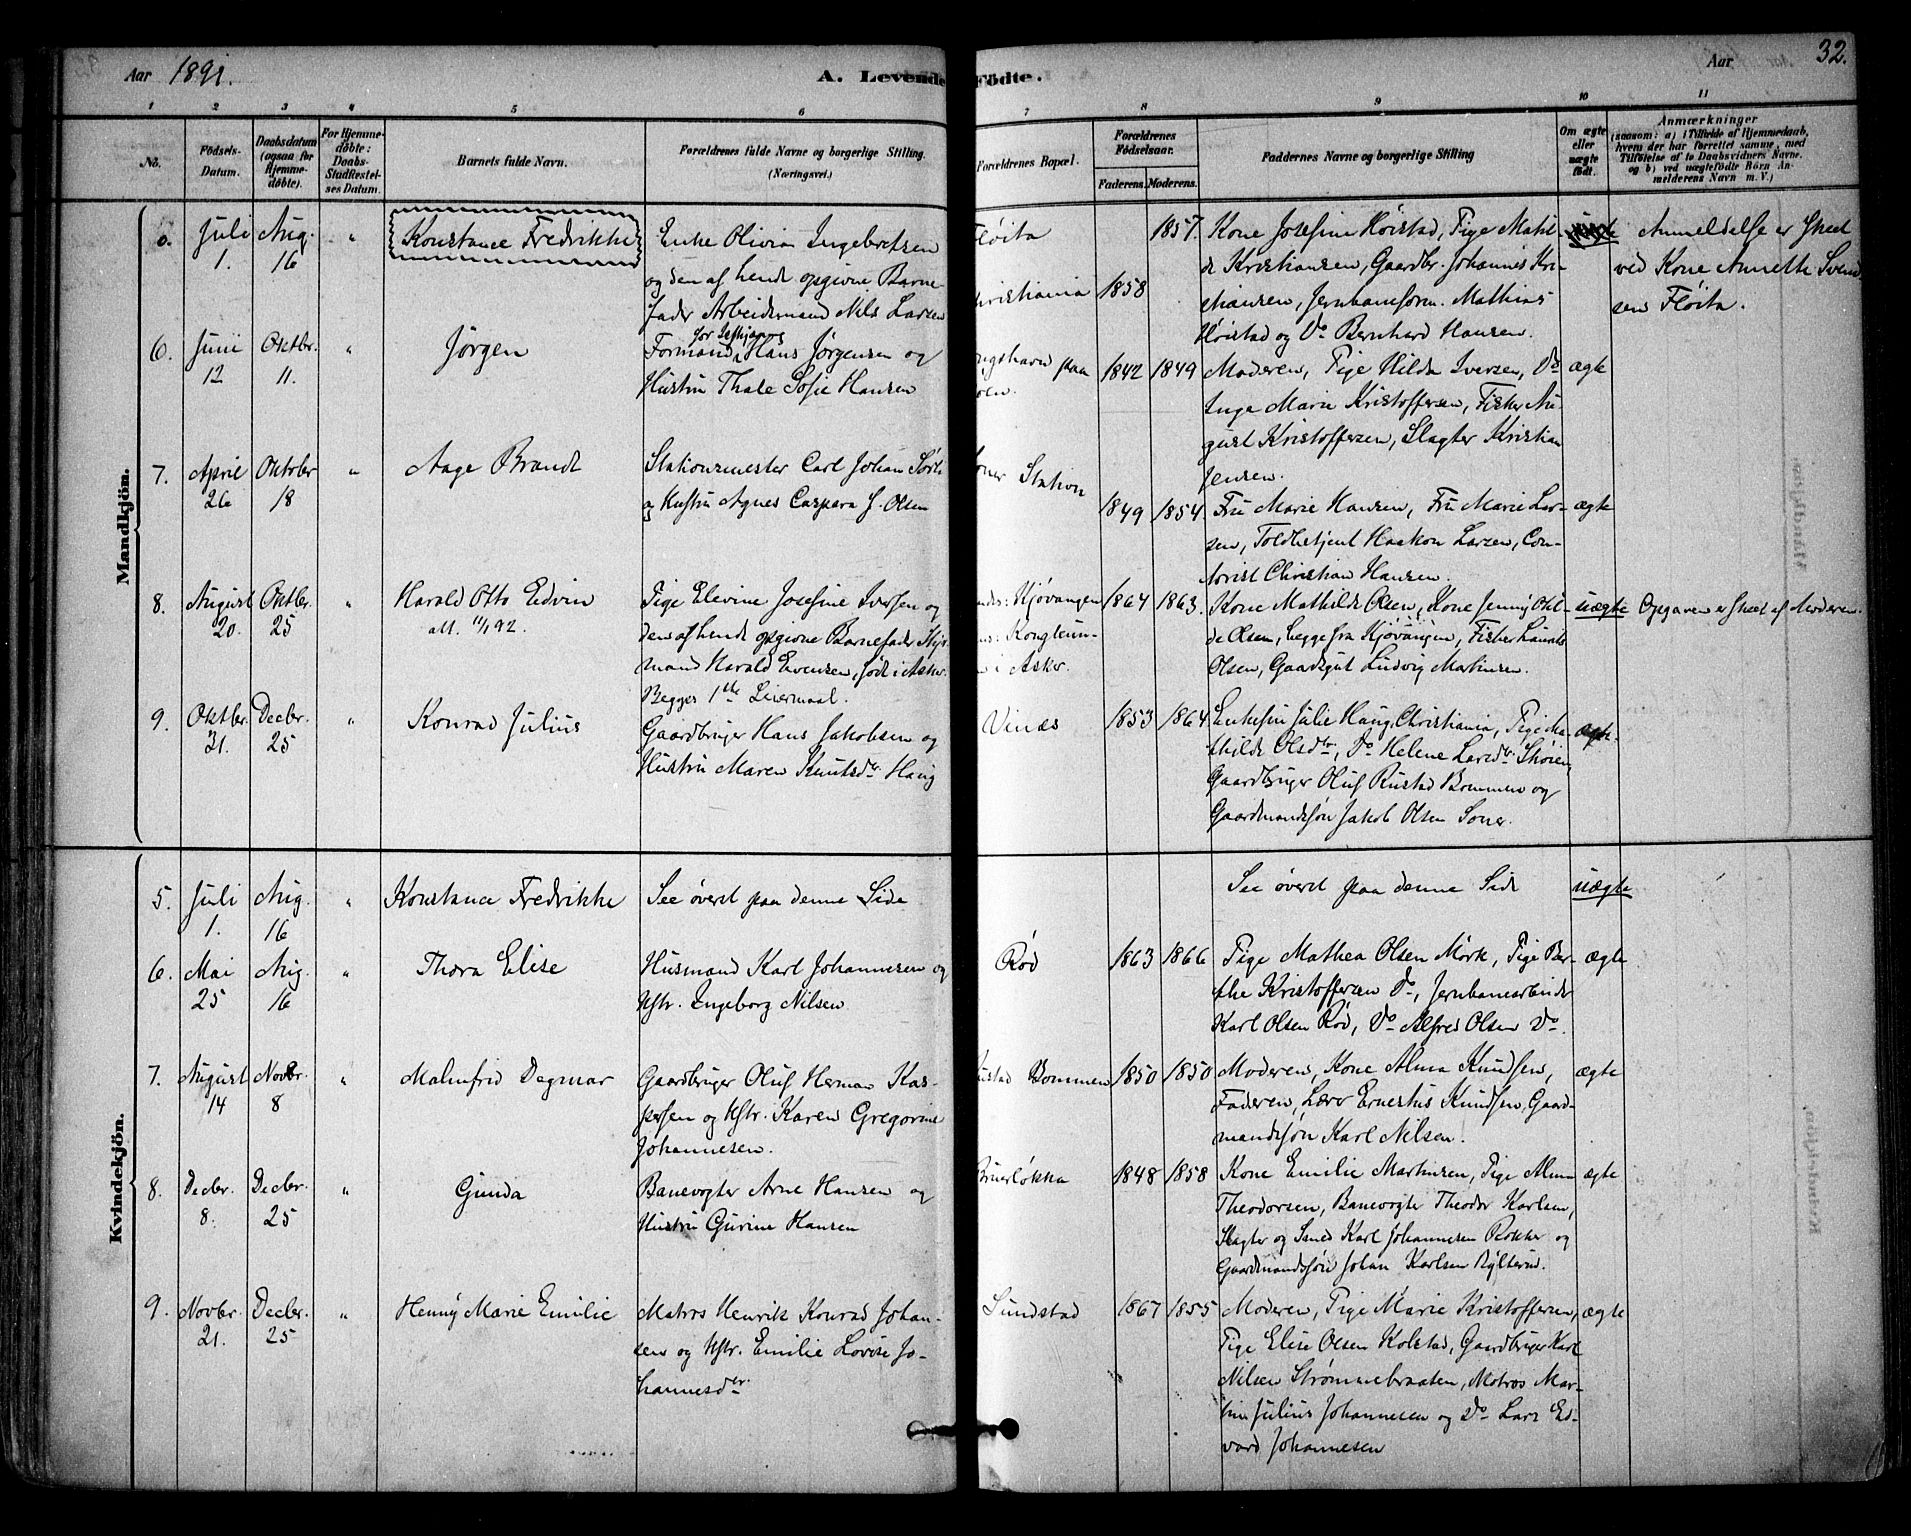 Aar 1891.
A. Levende Födte.
Aar
32.
1 2 3 4 5 6 7 8 9 10 11
No.
Födsels-Datum.
Daabsdatum (ogsaa for Hjemme-døbte).
For Hjemme-døbte: Daabs-Stadfæstel-ses Datum.
Barnets fulde Navn.
Forældrenes fulde Navne og borgerlige Stilling. (Næringsvei.)
Forældrenes Bopæl.
Forældrenes Födselsaar.
Faderens. Moderens.
Faddernes Navne og borgerlige Stilling
Om ægte eller uægte födt.
Anmærkninger
(saasom: a) i Tilfælde af Hjemmedaab,
hvem der har forrettet samme, med
Tilföielse af to Daabsvidners Navne.
og b) ved uægtefödte Börn An-
melderens Navn m. V.)
Mandkjön.
Juli 1. Aug. 16 " Konstance Fredrikke
Enke Olivia Ingebretsen
og den af hende opgivne Barne-
fader Arbeidermand Nils Larsen
Fløita
Christiania
1858 1857.
Kone Josefine Høistad, Pige Mathil-
de Kristiansen, Gaardbr. Johannes Kri-
stiansen, Jernbaneform. Mathias
Høistad og Do Bernhard Hansen.
Anmeldelse er skeet
ved Kone Annette Svend
sen Fløita.
6. Juni 12 Oktbr. 11. " Jørgen
Formand Hans Jørgensen og
Hustru Thale Sofie Hansen
ngshavn paa
1842 1849
Moderen, Pige Hilda Iversen, Do
Inga Marie Kristoffersen, Fisker Au-
gust Kristoffersen, Slagter Kristian
Jensen.
ægte
7. April 26 Oktober 18 " Aage Brandt
Stationsmester Carl Johan Sørli
og Hustru Agnes Caspara J. Olsen
oner Station
1849 1854
Fru Marie Hansen, Fru Marie Lar-
sen, Toldbetjent Haakon Larsen, Con-
torist Christian Hansen.
ægte
8. August 20. Oktbr. 25 " Harald Otto Edvin
att. 11/1 92.
Pige Elevine Josefine Iversen og
den af hende opgivne Barnefader Styr
mand Harald Evensen, født i Asker.
Begges 1ste Leiermaal.
Kjøvangen
Konglun-
n i Asker.
1864 1863.
Kone Mathilde Olsen, Kone Jenny Otil-
de Olsen, begge fra Kjøvangen, Fisker Laurits
Olsen, Gaardsgut Ludvig Martinsen.
uægte
Opgaven er skeet af Moderen.
9. Oktbr. 31. Decbr. 25 " Konrad Julius
Gaardbruger Hans Jakobsen og
Hustru Maren Knutsdtr. Haug
Vinæs
1853 1864
Enkefru Julie Haug, Christiania, Pige Ma-
thilde Olsdtr, Do Helene Larsdtr. Skøien,
Gaardbruger Oluf Rustad Bommen og
Gaardmandssøn Jakob Olsen Soner.
ægte.
Kvindekjön.
5. Juli 1. Aug. 16 " Konstance Fredrikke
See øverst paa denne Side
See øverst paa denne Side
uægte
6. Mai 25 Aug. 16 " Thora Elise
Husmand Karl Johannesen og
Hstr. Ingeborg Nilsen
Rød
1863 1866
Pige Mathea Olsen Mørk, Pige Ber-
the Kristoffersen Do, Jernbanearbeider
Karl Olsen Rød, Do Alfred Olsen Do.
ægte
7. August 14 Novbr. 8 " Malmfrid Dagmar
Gaardbruger Oluf Herman Kas-
persen og Hstr. Karen Gregorine
Johannesen.
ustad Bommen
1850 1850
Moderen, Kone Alma Knudsen,
Faderen, Lærer Ernestus Knudsen, Gaard-
mandssøn Karl Nilsen.
ægte
8. Decbr. 8. Decbr. 25 " Gunda
Banevogter Arne Hansen og
Hustru Gurine Hansen
Bruerløkka
1848 1858
Kone Emilie Martinsen, Pige Alma
Theodorsen, Banevogter Theodor Karlsen,
Slagter og Smed Karl Johannesen Rokker og
Gaardmandssøn Johan Karlsen Rylterud.
ægte
9. Novbr. 21. Decbr. 25 " Henny Marie Emilie
Matros Henrik Konrad Johan-
sen og Hstr. Emilie Lovise Jo-
hannesdtr
Sundstad
1867 1855
Moderen, Pige Marie Kristoffersen,
Pige Elise Olsen Kolstad, Gaardbruger Karl
Nilsen Strømmebraaten, Matros Mar-
tin Julius Johannesen og Do Lars Ed-
vard Johannesen
ægte